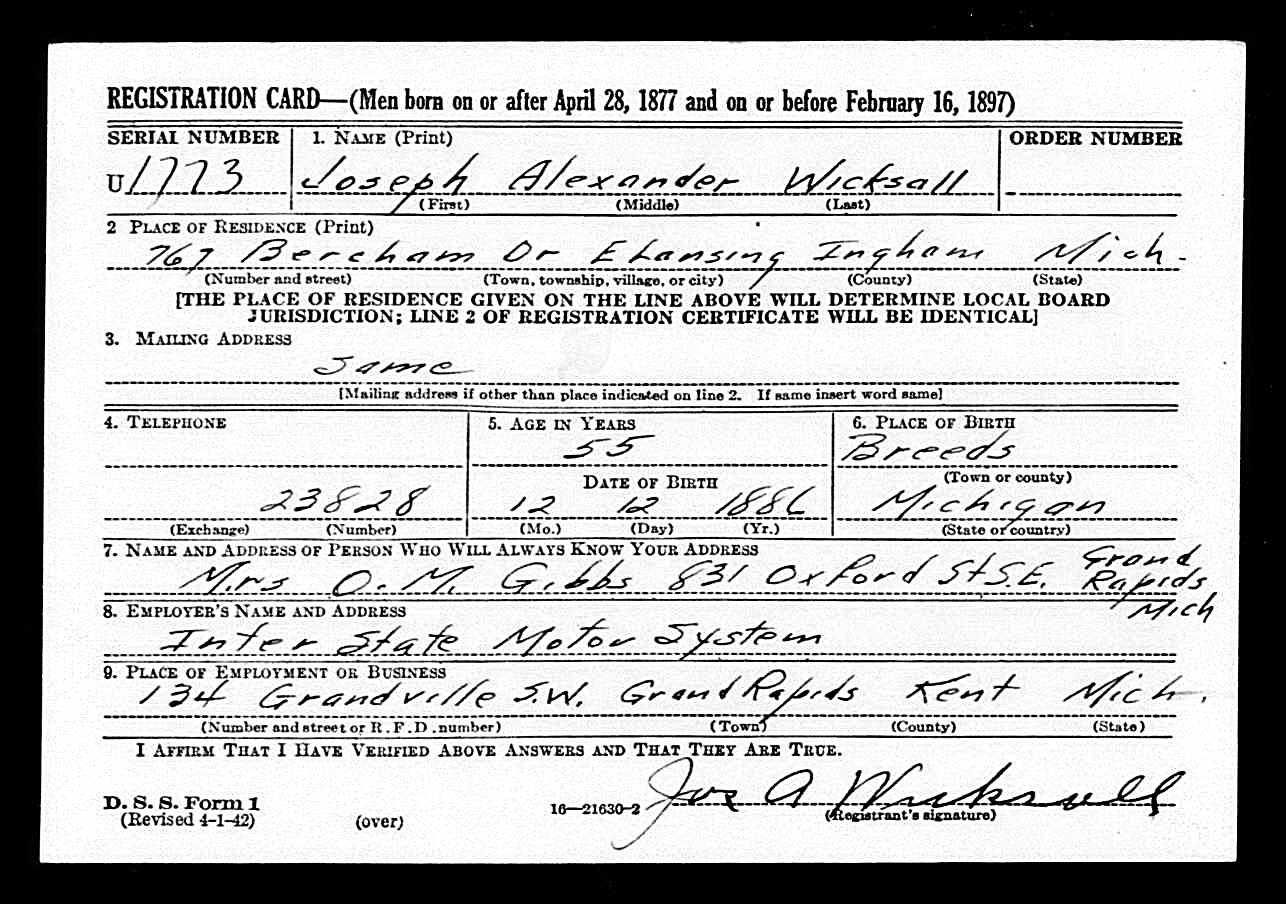 REGISTRATION CARD—(Men born on or after April 28, 1877 and on or before February 16, 1897)
SERIAL NUMBER 1. NAME (Print) ORDER NUMBER
U 1773 Joseph Alexander Wicksall
(First) (Middle) (Last)
2 PLACE OF RESIDENCE (Print)
767 Bercham Dr ELansing Ingham Mich.
(Number and street) (Town, township, village, or city) (County) (State)
[THE PLACE OF RESIDENCE GIVEN ON THE LINE ABOVE WILL DETERMINE LOCAL BOARD
JURISDICTION; LINE 2 OF REGISTRATION CERTIFICATE WILL BE IDENTICAL]
3. MAILING ADDRESS
Same
[Mailing address if other than place indicated on line 2. If same insert word same]
4. TELEPHONE 5. AGE IN YEARS 6. PLACE OF BIRTH
55 Breeds
DATE OF BIRTH (Town or county)
23828 12 12 1886 Michigan
(Exchange) (Number) (Mo.) (Day) (Yr.) (State or country)
7. NAME AND ADDRESS OF PERSON WHO WILL ALWAYS KNOW YOUR ADDRESS
Mrs O. M. Gibbs 831 Oxford St S.E. Grand
Rapids
Mich
8. EMPLOYER'S NAME AND ADDRESS
Inter State Motor System
9. PLACE OF EMPLOYMENT OR BUSINESS
134 Grandville S.W. Grand Rapids Kent Mich.
(Number and street or R.F.D. number) (Town) (County) (State)
I AFFIRM THAT I HAVE VERIFIED ABOVE ANSWERS AND THAT THEY ARE TRUE.
Jos A Wicksall
D. S. S. Form 1 16—21630-2 (Registrant's signature)
(Revised 4-1-42) (over)